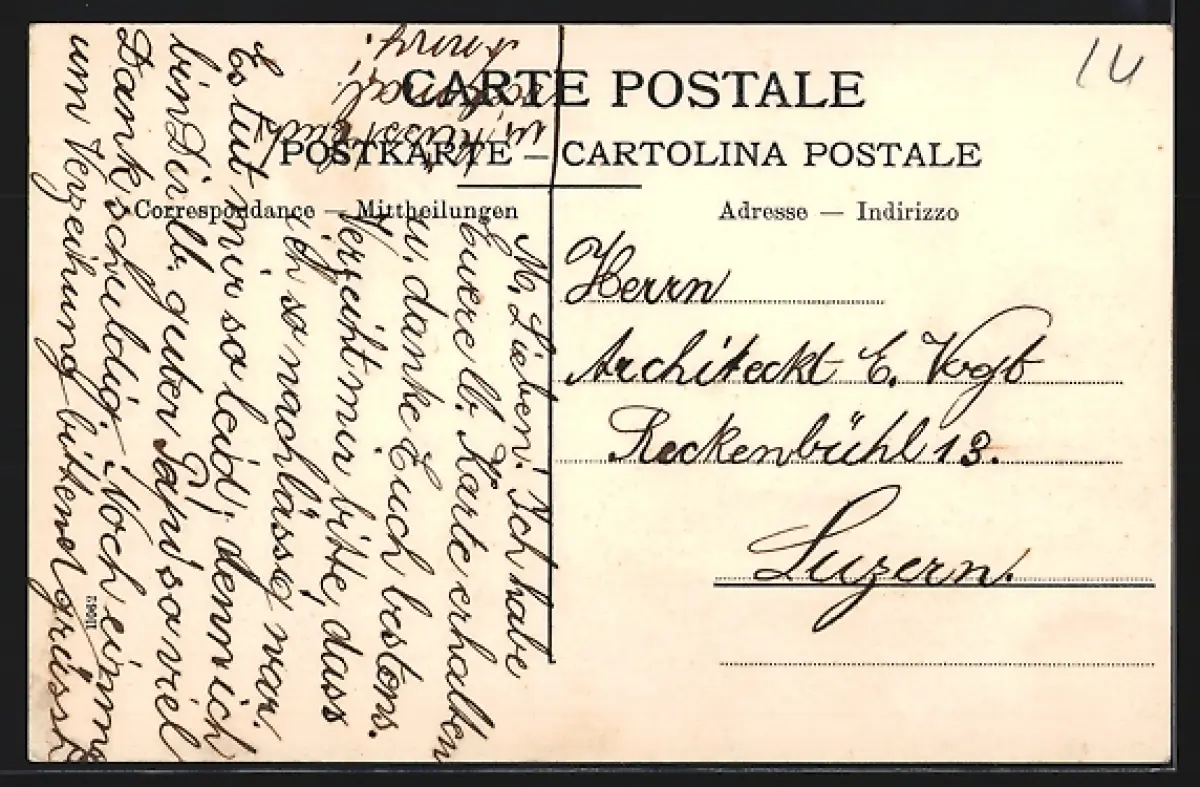 14
CARTE POSTALE
POSTKARTE — CARTOLINA POSTALE
Correspondance — Mittheilungen
Adresse — Indirizzo
Herrn
Architeckt E. Vogt
Reckenbühl 13.
Luzern.
M. Lieben. Ich habe
Euere lb. Karte erhalten
u. danke Euch bestens.
Verzeiht mir bitte, dass
ich so nachlässig war.
Es tut mir so leid, denn ich
bin Dir lb. guter Papa so viel
Dank schuldig. Noch einma
um Verzeihung bittend grüsst
u. küsst Euch